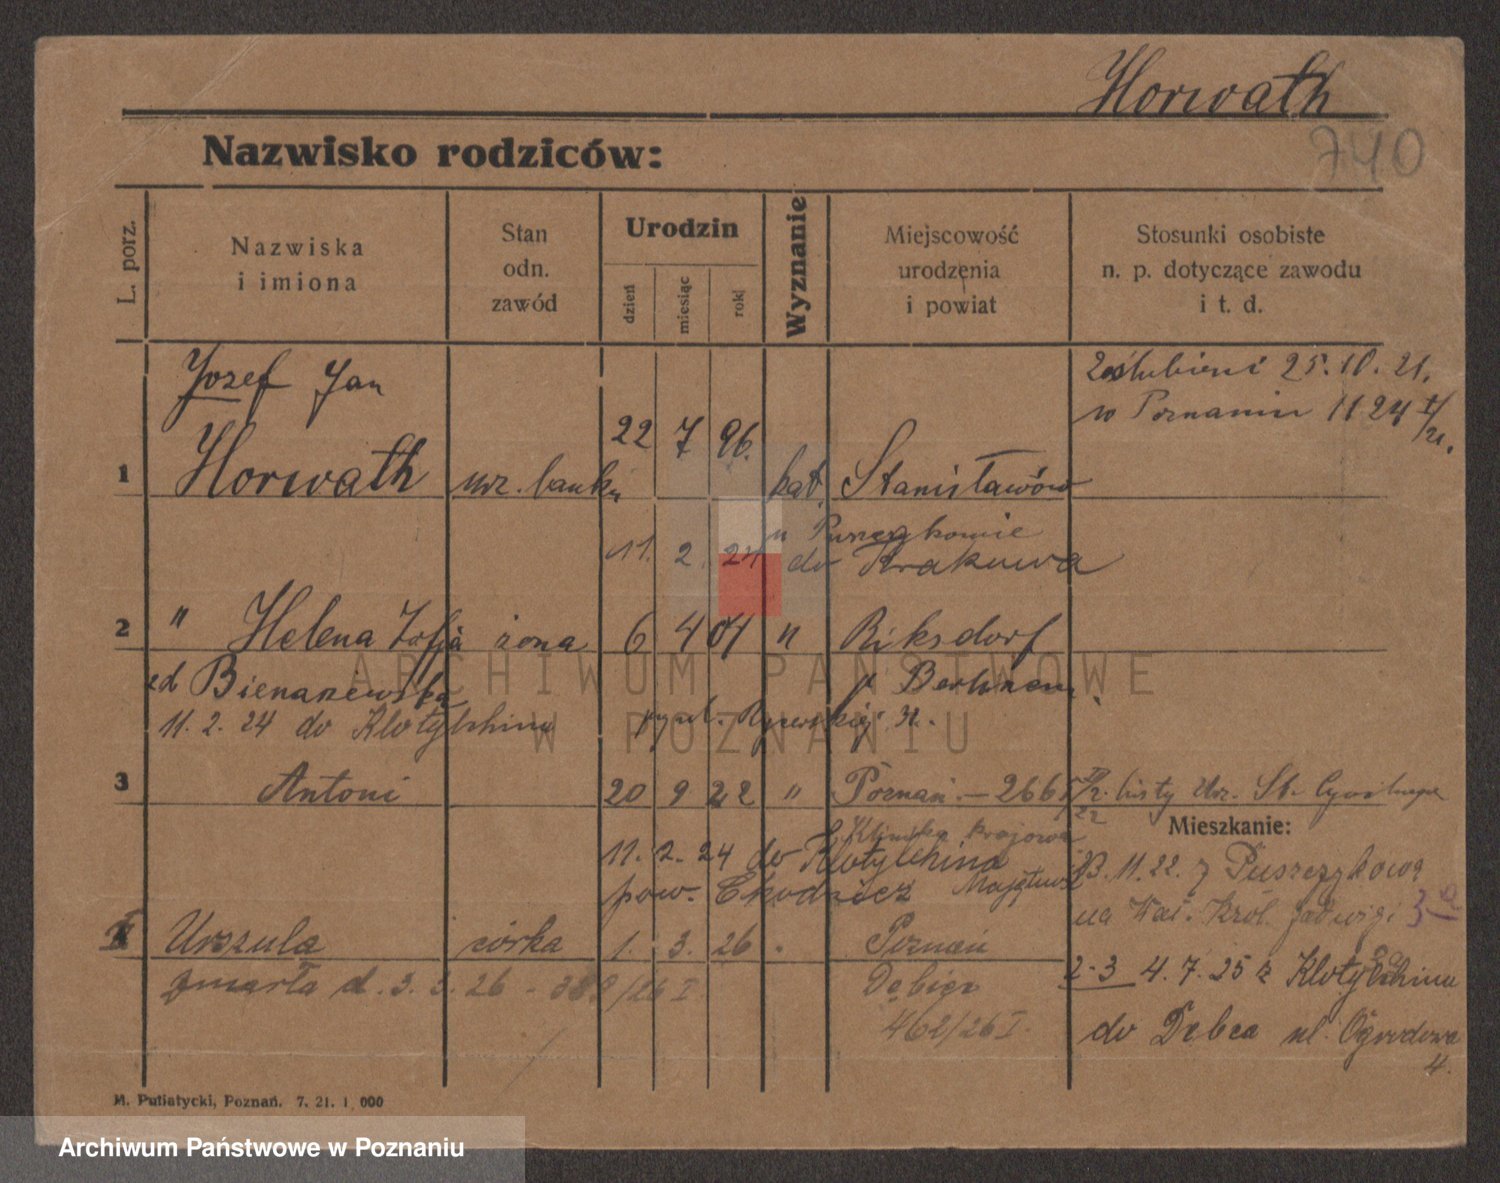 Horwath
740
Nazwisko rodziców:
L. porz.
Nazwiska
i imiona
Stan
odn.
zawód
Urodzin
dzień
miesiąc
rok
Wyznanie
Miejscowość
urodzenia
i powiat
Stosunki osobiste
n. p. dotyczące zawodu
i t. d.
Jozef Jan
zaślubieni 25.10.21.
w Poznaniu 1124 I/21.
1 Horwath urz. banku 22 7 96. kat. Stanisławów
11. 2. 24 u Puszczykowie
do Krakowa
2 " Helena Zofja żona 6 4 01 " Riksdorf
zd p. Berlinem.
11. 2. 24 do Klotyldzina
3 Antoni 20 9 22 " Poznań. – 266 listy Urz. St. Cywilnego
Klinika krajowa
Mieszkanie:
11. 2. 24 do Klotyldzina
pow. Chodzież
3. 11. 22. z Puszczykowa
na Wał. Król. Jadwigi 3a
Urszula córka 1. 3. 26 Poznań
zmarła d. 3. 3. 26 /26 I Dębiec
462/26 I.
2-3 4. 7. 25 z Klotyldzina
do Dębca ul. Ogrodowa
4.
M. Putiatycki, Poznań. 7. 21. 1 000
ARCHIWUM PAŃSTWOWE
W POZNANIU
Archiwum Państwowe w Poznaniu